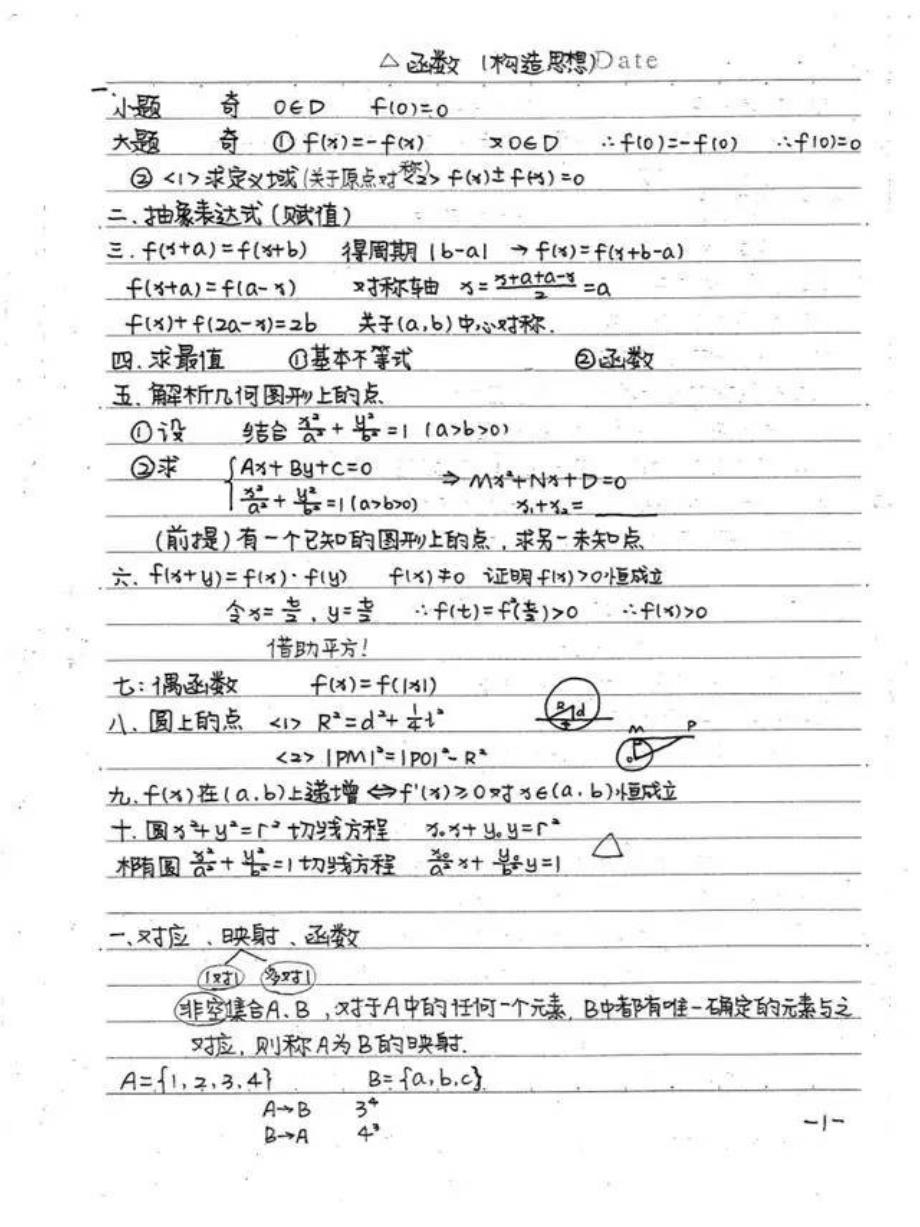 △函数 (构造思想) Date
一.
小题 奇 0∈D f(0)=0
大题 奇 ① f(x)=-f(x) 又0∈D ∴f(0)=-f(0) ∴f(0)=0
② <1>求定义域(关于原点对称)<2> f(x)±f(-x)=0
二.抽象表达式(赋值)
三.f(x+a)=f(x+b) 得周期|b-a| →f(x)=f(x+b-a)
f(x+a)=f(a-x) 对称轴 x=(x+a+a-x)/2=a
f(x)+f(2a-x)=2b 关于(a,b)中心对称.
四.求最值 ①基本不等式 ②函数
五.解析几何图形上的点
①设 结合 x²/a²+y²/b²=1 (a>b>0)
②求 {Ax+By+C=0
x²/a²+y²/b²=1(a>b>0) ⇒Mx²+Nx+D=0
x₁+x₂=____
(前提)有一个已知的图形上的点,求另一未知点
六.f(x+y)=f(x)·f(y) f(x)≠0 证明f(x)>0恒成立
令x=t/2,y=t/2 ∴f(t)=f²(t/2)>0 ∴f(x)>0
借助平方!
七:偶函数 f(x)=f(|x|)
八.圆上的点 <1> R²=d²+¼l² R d
<2> |PM|²=|PO|²-R² M P O
九.f(x)在(a.b)上递增⇔f'(x)≥0对x∈(a.b)恒成立
十.圆x²+y²=r²切线方程 x₀x+y₀y=r²
椭圆 x²/a²+y²/b²=1切线方程 x₀/a² x+y₀/b² y=1 △
一、对应、映射、函数
1对1 多对1
非空集合A、B,对于A中的任何一个元素,B中都有唯一确定的元素与之
对应,则称A为B的映射.
A={1,2,3.4} B={a,b,c}
A→B 3⁴
B→A 4³
-1-